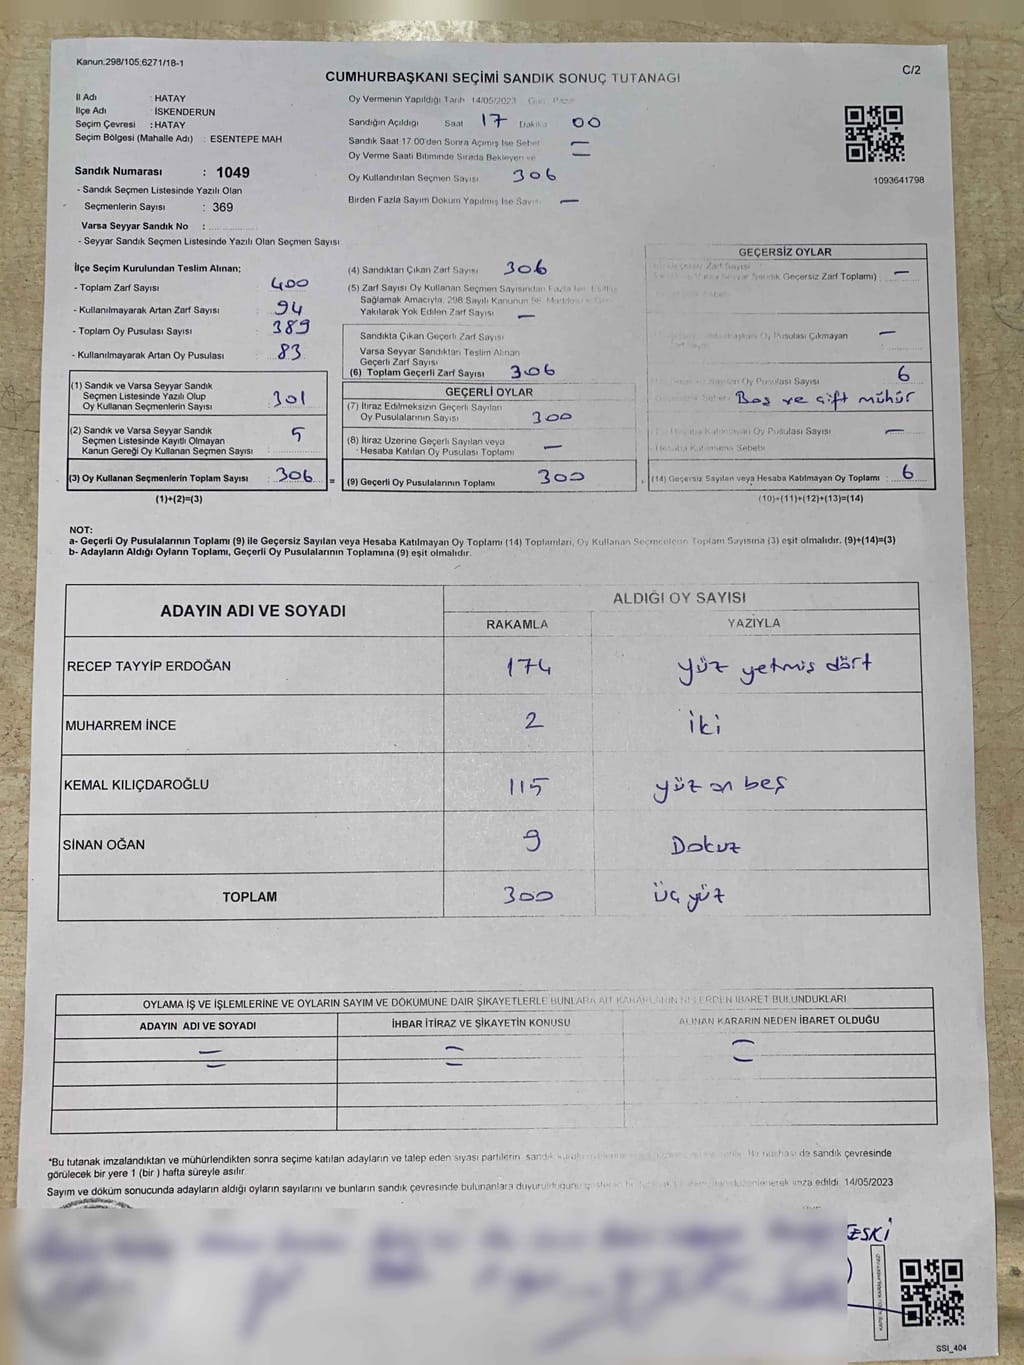 Kanun:298/105;6271/18-1
C/2
CUMHURBAŞKANI SEÇİMİ SANDIK SONUÇ TUTANAĞI
İl Adı : HATAY
İlçe Adı : İSKENDERUN
Seçim Çevresi : HATAY
Seçim Bölgesi (Mahalle Adı) : ESENTEPE MAH
Sandık Numarası : 1049
- Sandık Seçmen Listesinde Yazılı Olan
Seçmenlerin Sayısı : 369
Varsa Seyyar Sandık No :
- Seyyar Sandık Seçmen Listesinde Yazılı Olan Seçmen Sayısı
Oy Vermenin Yapıldığı Tarih 14/05/2023 Gün: Pazar
Sandığın Açıldığı Saat 17 Dakika 00
Sandık Saat 17:00'den Sonra Açımış İse Sebebi
Oy Verme Saati Bitiminde Sırada Bekleyen ve
Oy Kullandırılan Seçmen Sayısı 306
Birden Fazla Sayım Döküm Yapılmış İse Sayısı —
1093641798
İlçe Seçim Kurulundan Teslim Alınan;
- Toplam Zarf Sayısı 400
- Kullanılmayarak Artan Zarf Sayısı 94
- Toplam Oy Pusulası Sayısı 389
- Kullanılmayarak Artan Oy Pusulası 83
(1) Sandık ve Varsa Seyyar Sandık
Seçmen Listesinde Yazılı Olup
Oy Kullanan Seçmenlerin Sayısı 301
(2) Sandık ve Varsa Seyyar Sandık
Seçmen Listesinde Kayıtlı Olmayan
Kanun Gereği Oy Kullanan Seçmen Sayısı 5
(3) Oy Kullanan Seçmenlerin Toplam Sayısı : 306 =
(1)+(2)=(3)
(4) Sandıktan Çıkan Zarf Sayısı 306
(5) Zarf Sayısı Oy Kullanan Seçmen Sayısından Fazla ise
Sağlamak Amacıyla, 298 Sayılı Kanunun 98. Maddesi
Yakılarak Yok Edilen Zarf Sayısı —
Sandıkta Çıkan Geçerli Zarf Sayısı
Varsa Seyyar Sandıktan Teslim Alınan
Geçerli Zarf Sayısı
(6) Toplam Geçerli Zarf Sayısı 306
GEÇERLİ OYLAR
(7) İtiraz Edilmeksizin Geçerli Sayılan
Oy Pusulasının Sayısı 300
(8) İtiraz Üzerine Geçerli Sayılan veya
Hesaba Katılan Oy Pusulası Toplamı —
(9) Geçerli Oy Pusulalarının Toplamı 300
GEÇERSİZ OYLAR
Geçersiz Zarf Sayısı
Sandık Geçersiz Zarf Toplamı) —
Oy Pusulası Çıkmayan —
Oy Pusulası Sayısı 6
Boş ve çift mühür
Hesaba Katılmayan Oy Pusulası Sayısı —
Hesaba Katılmama Sebebi
(14) Geçersiz Sayılan veya Hesaba Katılmayan Oy Toplamı : 6
(10)+(11)+(12)+(13)=(14)
NOT:
a- Geçerli Oy Pusulalarının Toplamı (9) ile Geçersiz Sayılan veya Hesaba Katılmayan Oy Toplamı (14) Toplamları, Oy Kullanan Seçmenlerin Toplam Sayısına (3) eşit olmalıdır. (9)+(14)=(3)
b- Adayların Aldığı Oyların Toplamı, Geçerli Oy Pusulalarının Toplamına (9) eşit olmalıdır.
ADAYIN ADI VE SOYADI ALDIĞI OY SAYISI
RAKAMLA YAZIYLA
RECEP TAYYİP ERDOĞAN 174 yüz yetmiş dört
MUHARREM İNCE 2 iki
KEMAL KILIÇDAROĞLU 115 yüz on beş
SİNAN OĞAN 9 Dokuz
TOPLAM 300 üç yüz
OYLAMA İŞ VE İŞLEMLERİNE VE OYLARIN SAYIM VE DÖKÜMÜNE DAİR ŞİKAYETLERLE BUNLARA AİT KARARLARIN NELERDEN İBARET BULUNDUKLARI
ADAYIN ADI VE SOYADI İHBAR İTİRAZ VE ŞİKAYETİN KONUSU ALINAN KARARIN NEDEN İBARET OLDUĞU
*Bu tutanak imzalandıktan ve mühürlendikten sonra seçime katılan adayların ve talep eden siyasi partilerin sandık çevresinde
görülecek bir yere 1 (bir ) hafta süreyle asılır.
Sayım ve döküm sonucunda adayların aldığı oyların sayılarını ve bunların sandık çevresinde bulunanlara duyurulduğunu imza edildi 14/05/2023
ESKİ
SSİ_404